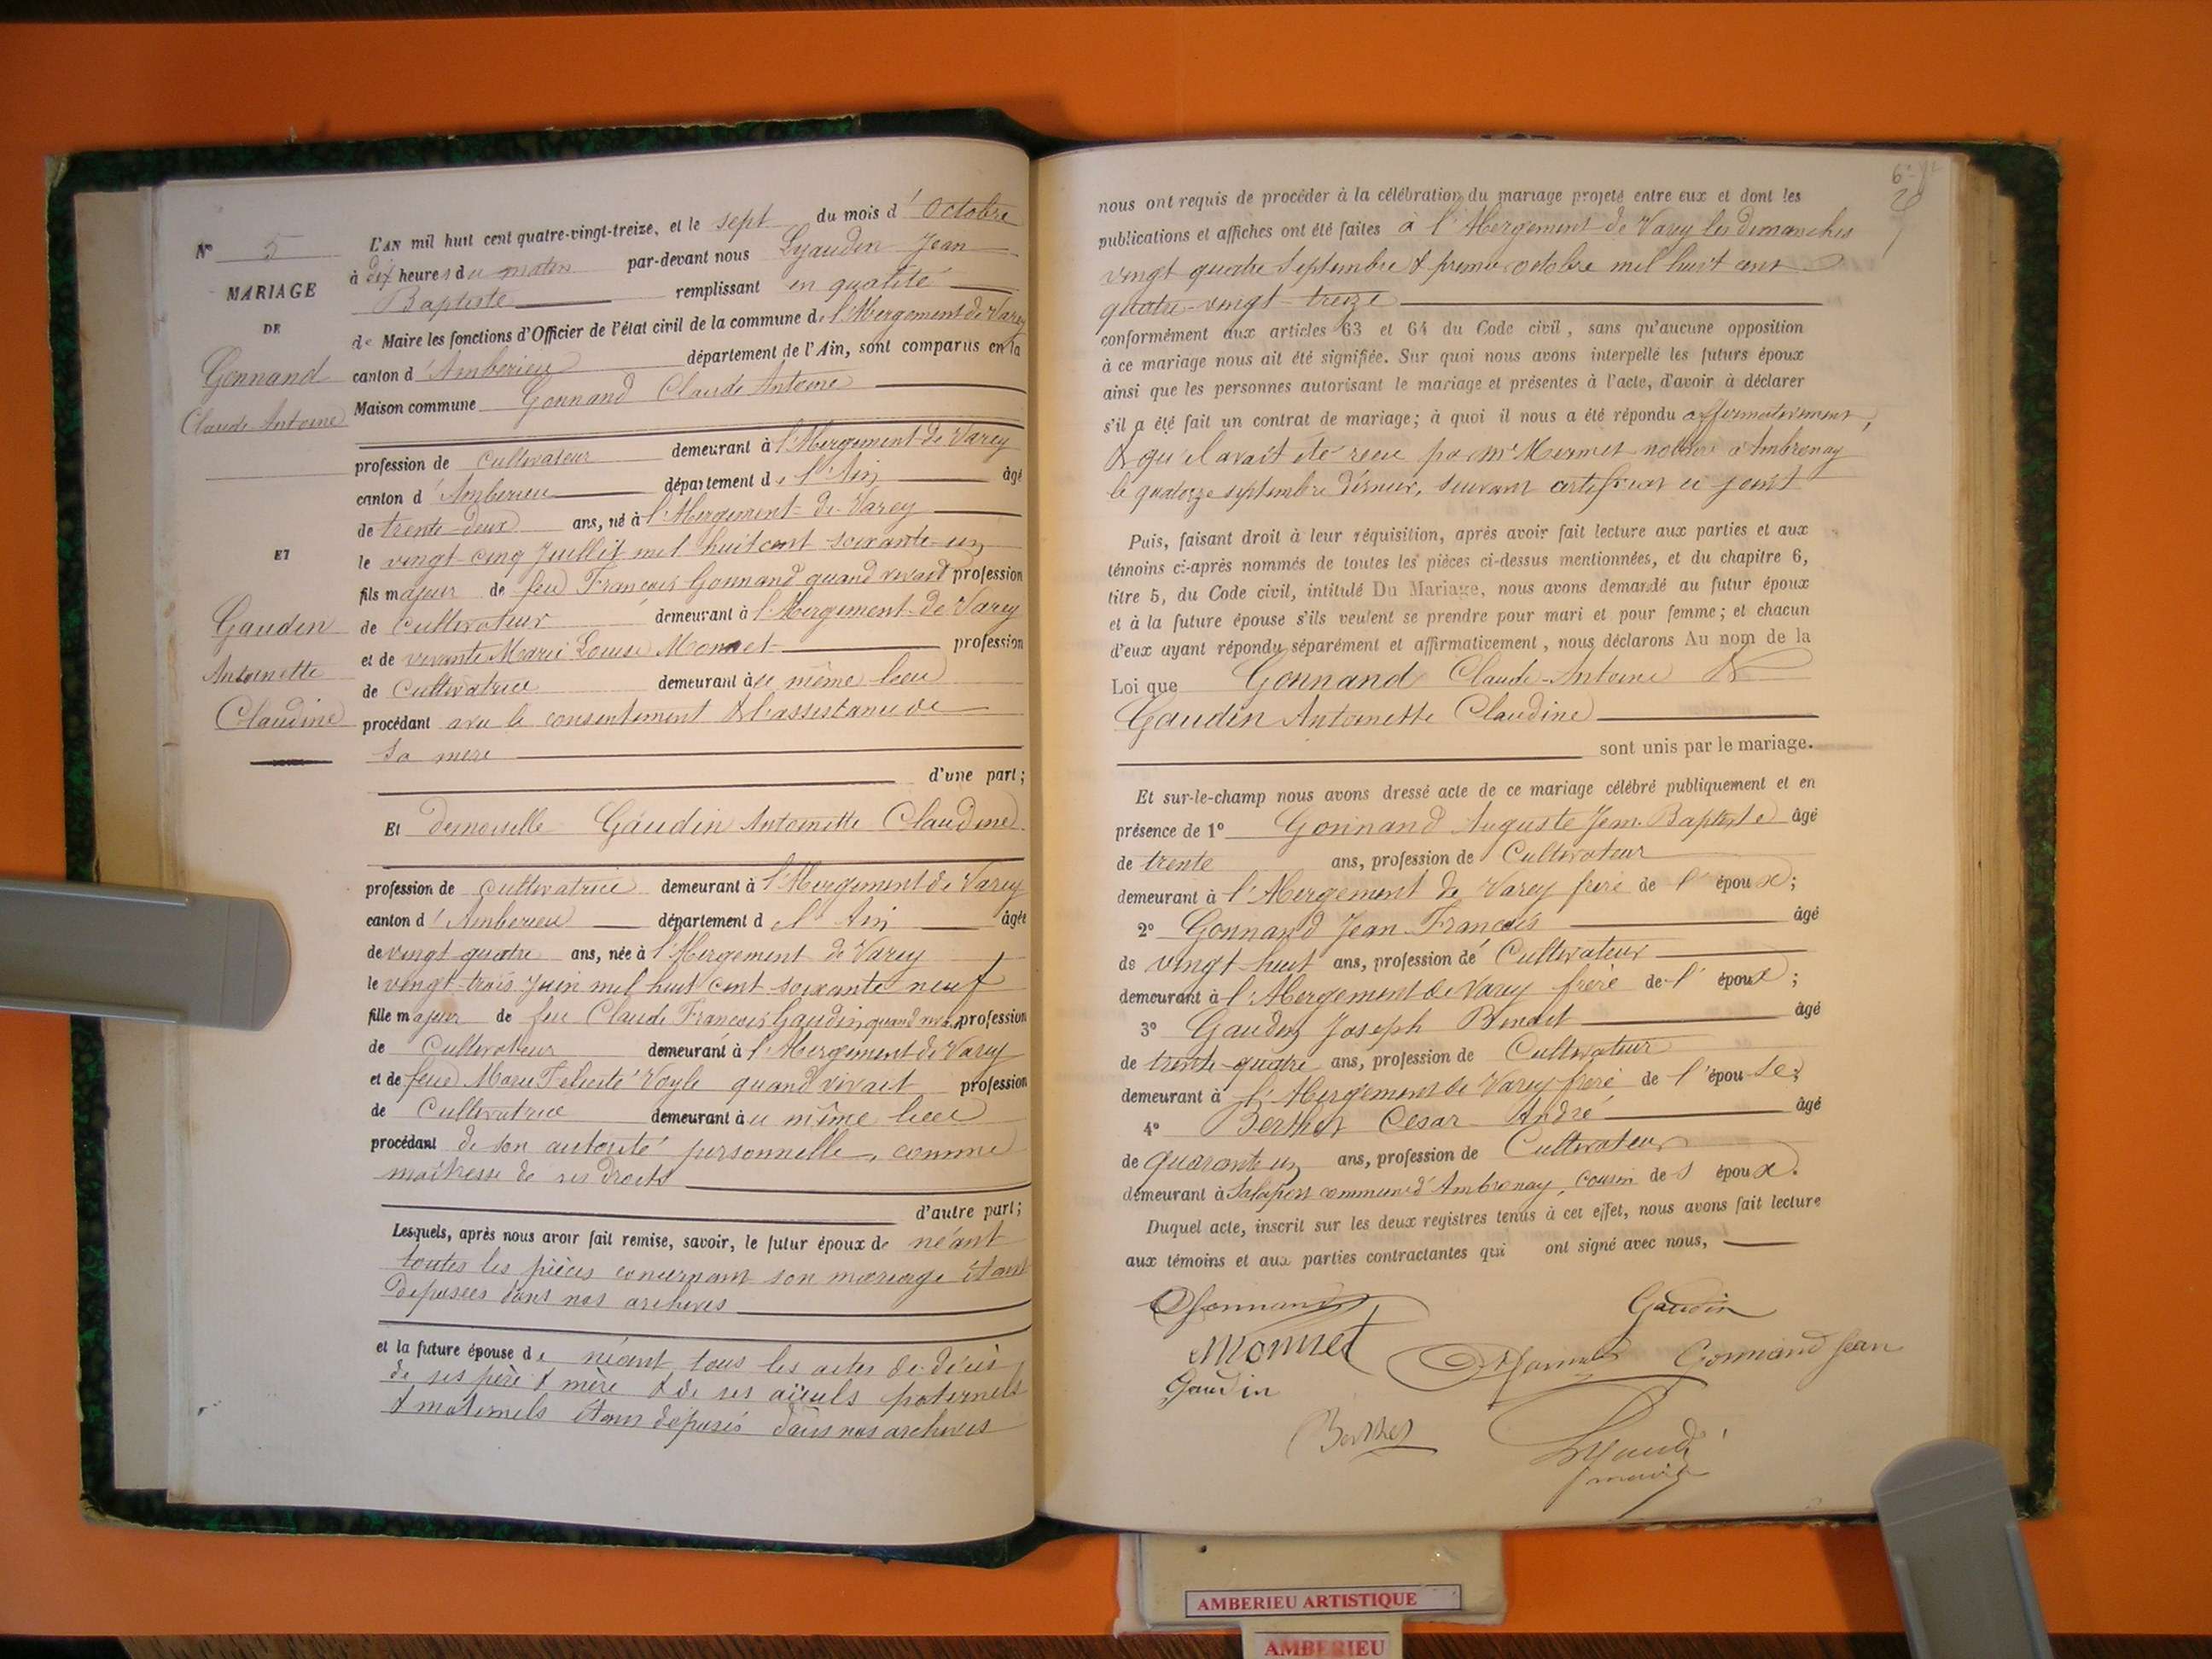 N° 5
MARIAGE
DE
Gonnand
Claude Antoine
ET
Gaudin
Antoinette
Claudine
L'AN mil huit cent quatre-vingt-treize, et le sept du mois d'Octobre
à dix heures du matin par-devant nous Lyaudin Jean
Baptiste remplissant en qualité
de Maire les fonctions d'Officier de l'état civil de la commune de l'Abergement de Varey
canton d'Amberieu département de l'Ain, sont comparus en la
Maison commune Gonnand Claude Antoine
profession de Cultivateur demeurant à l'Abergement de Varey
canton d'Amberieu département de l'Ain âgé
de trente-deux ans, né à l'Abergement de Varey
le vingt-cinq Juillet mil huit cent soixante-un
fils majeur de feu François Gonnand quand vivait profession
de Cultivateur demeurant à l'Abergement de Varey
et de vivante Marie Louise Monnet profession
de Cultivatrice demeurant à ce même lieu
procédant avec le consentement & l'assistance de
sa mère
d'une part;
Et demoiselle Gaudin Antoinette Claudine
profession de cultivatrice demeurant à l'Abergement de Varey
canton d'Amberieu département de l'Ain âgée
de vingt quatre ans, née à l'Abergement de Varey
le vingt-trois Juin mil huit cent soixante neuf
fille majeur de feu Claude François Gaudin quand vivait profession
de Cultivateur demeurant à l'Abergement de Varey
et de feue Marie Felicité Vayle quand vivait profession
de Cultivatrice demeurant à ce même lieu
procédant de son autorité personnelle, comme
maîtresse de ses droits
d'autre part;
Lesquels, après nous avoir fait remise, savoir, le futur époux de néant
toutes les pièces concernant son mariage étant
déposées dans nos archives
et la future épouse de néant, tous les actes de décès
de ses père & mère & de ses aïeuls paternels
& maternels étant déposés dans nos archives
nous ont requis de procéder à la célébration du mariage projeté entre eux et dont les
publications et affiches ont été faites à l'Abergement de Varey les dimanches
vingt quatre Septembre & premier octobre mil huit cent
quatre-vingt-treize
conformément aux articles 63 et 64 du Code civil, sans qu'aucune opposition
à ce mariage nous ait été signifiée. Sur quoi nous avons interpellé les futurs époux
ainsi que les personnes autorisant le mariage et présentes à l'acte, d'avoir à déclarer
s'il a été fait un contrat de mariage; à quoi il nous a été répondu affirmativement,
& qu'il avait été reçu par Mr Mermet notaire à Ambronay
le quatorze septembre dernier, suivant certificat ci joint
Puis, faisant droit à leur réquisition, après avoir fait lecture aux parties et aux
témoins ci-après nommés de toutes les pièces ci-dessus mentionnées, et du chapitre 6,
titre 5, du Code civil, intitulé Du Mariage, nous avons demandé au futur époux
et à la future épouse s'ils veulent se prendre pour mari et pour femme; et chacun
d'eux ayant répondu séparément et affirmativement, nous déclarons Au nom de la
Loi que Gonnand Claude-Antoine &
Gaudin Antoinette Claudine
sont unis par le mariage.
Et sur-le-champ nous avons dressé acte de ce mariage célébré publiquement et en
présence de 1° Gonnand Auguste Jean-Baptiste âgé
de trente ans, profession de Cultivateur
demeurant à l'Abergement de Varey frère de l'époux;
2° Gonnand Jean-François âgé
de vingt-huit ans, profession de Cultivateur
demeurant à l'Abergement de Varey frère de l'époux;
3° Gaudin Joseph Benoit âgé
de trente-quatre ans, profession de Cultivateur
demeurant à l'Abergement de Varey frère de l'épouse;
4° Berthet Cesar André âgé
de quarante un ans, profession de Cultivateur
demeurant à Salaport commune d'Ambronay, cousin de l'époux.
Duquel acte, inscrit sur les deux registres tenus à cet effet, nous avons fait lecture
aux témoins et aux parties contractantes qui ont signé avec nous,
Gonnand Gaudin
Monnet
Gonnand Gonnand Jean
Gaudin
Berthet
Lyaudin
maire
AMBERIEU ARTISTIQUE
AMBERIEU